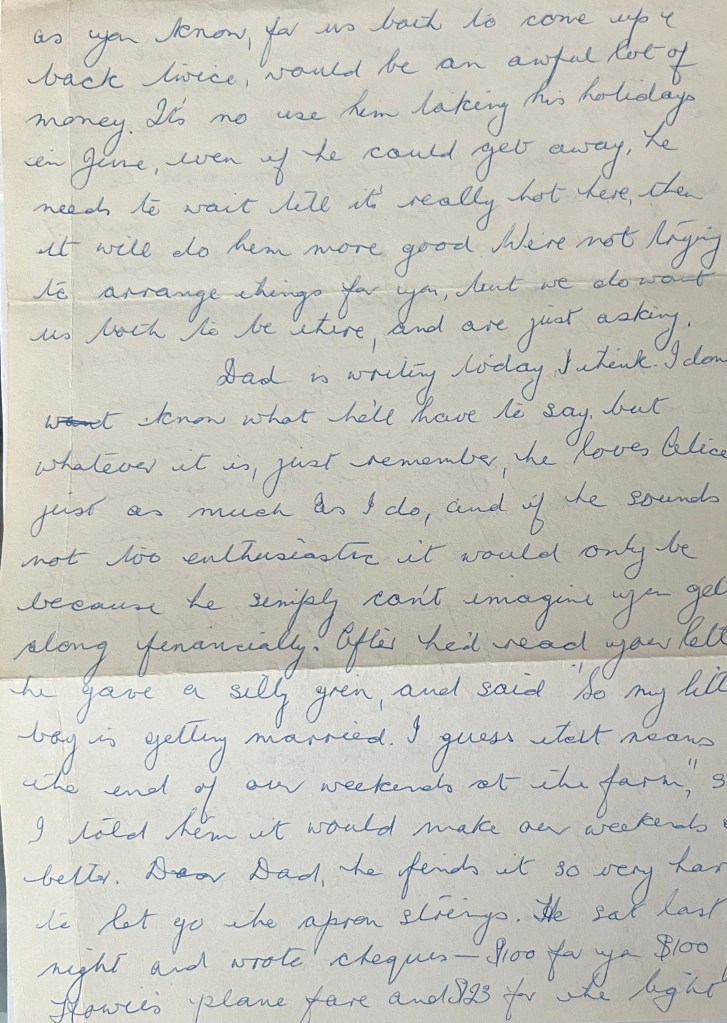 as you know, for us both to come up &
back twice, would be an awful lot of
money. It's no use him taking his holidays
in June, even if he could get away, he
needs to wait till it's really hot here, then
it will do him more good We're not trying
to arrange things for you, but we do want
us both to be there, and are just asking.
Dad is writing today I think. I don
want know what he'll have to say, but
whatever it is, just remember, he loves Celice
just as much as I do, and if he sounds
not too enthusiastic it would only be
because he simply can't imagine you get
along financially. After he'd read your lett
he gave a silly grin, and said "So my litt
boy is getting married. I guess that means
the end of our weekends at the farm", s
I told him it would make our weekends
better. Dear Dad, he finds it so very har
to let go the apron strings. He sat last
night and wrote cheques — $100 for ya $100
Howie's plane fare and $23 for the light